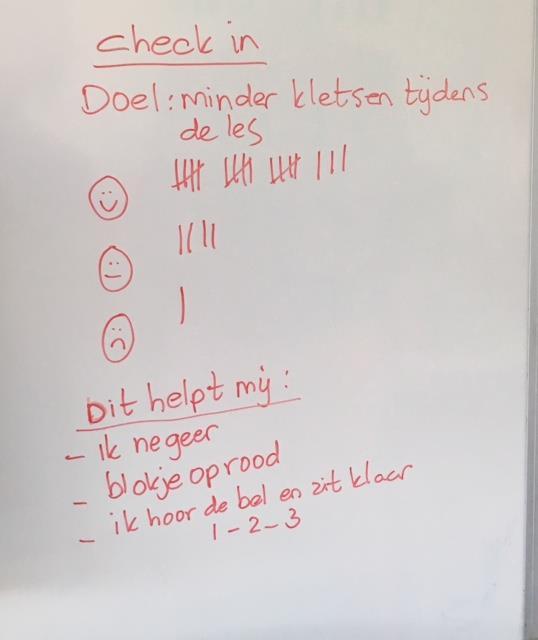 check in
Doel: minder kletsen tijdens
de les
Dit helpt mij:
- ik negeer
- blokje op rood
- ik hoor de bel en zit klaar
1-2-3